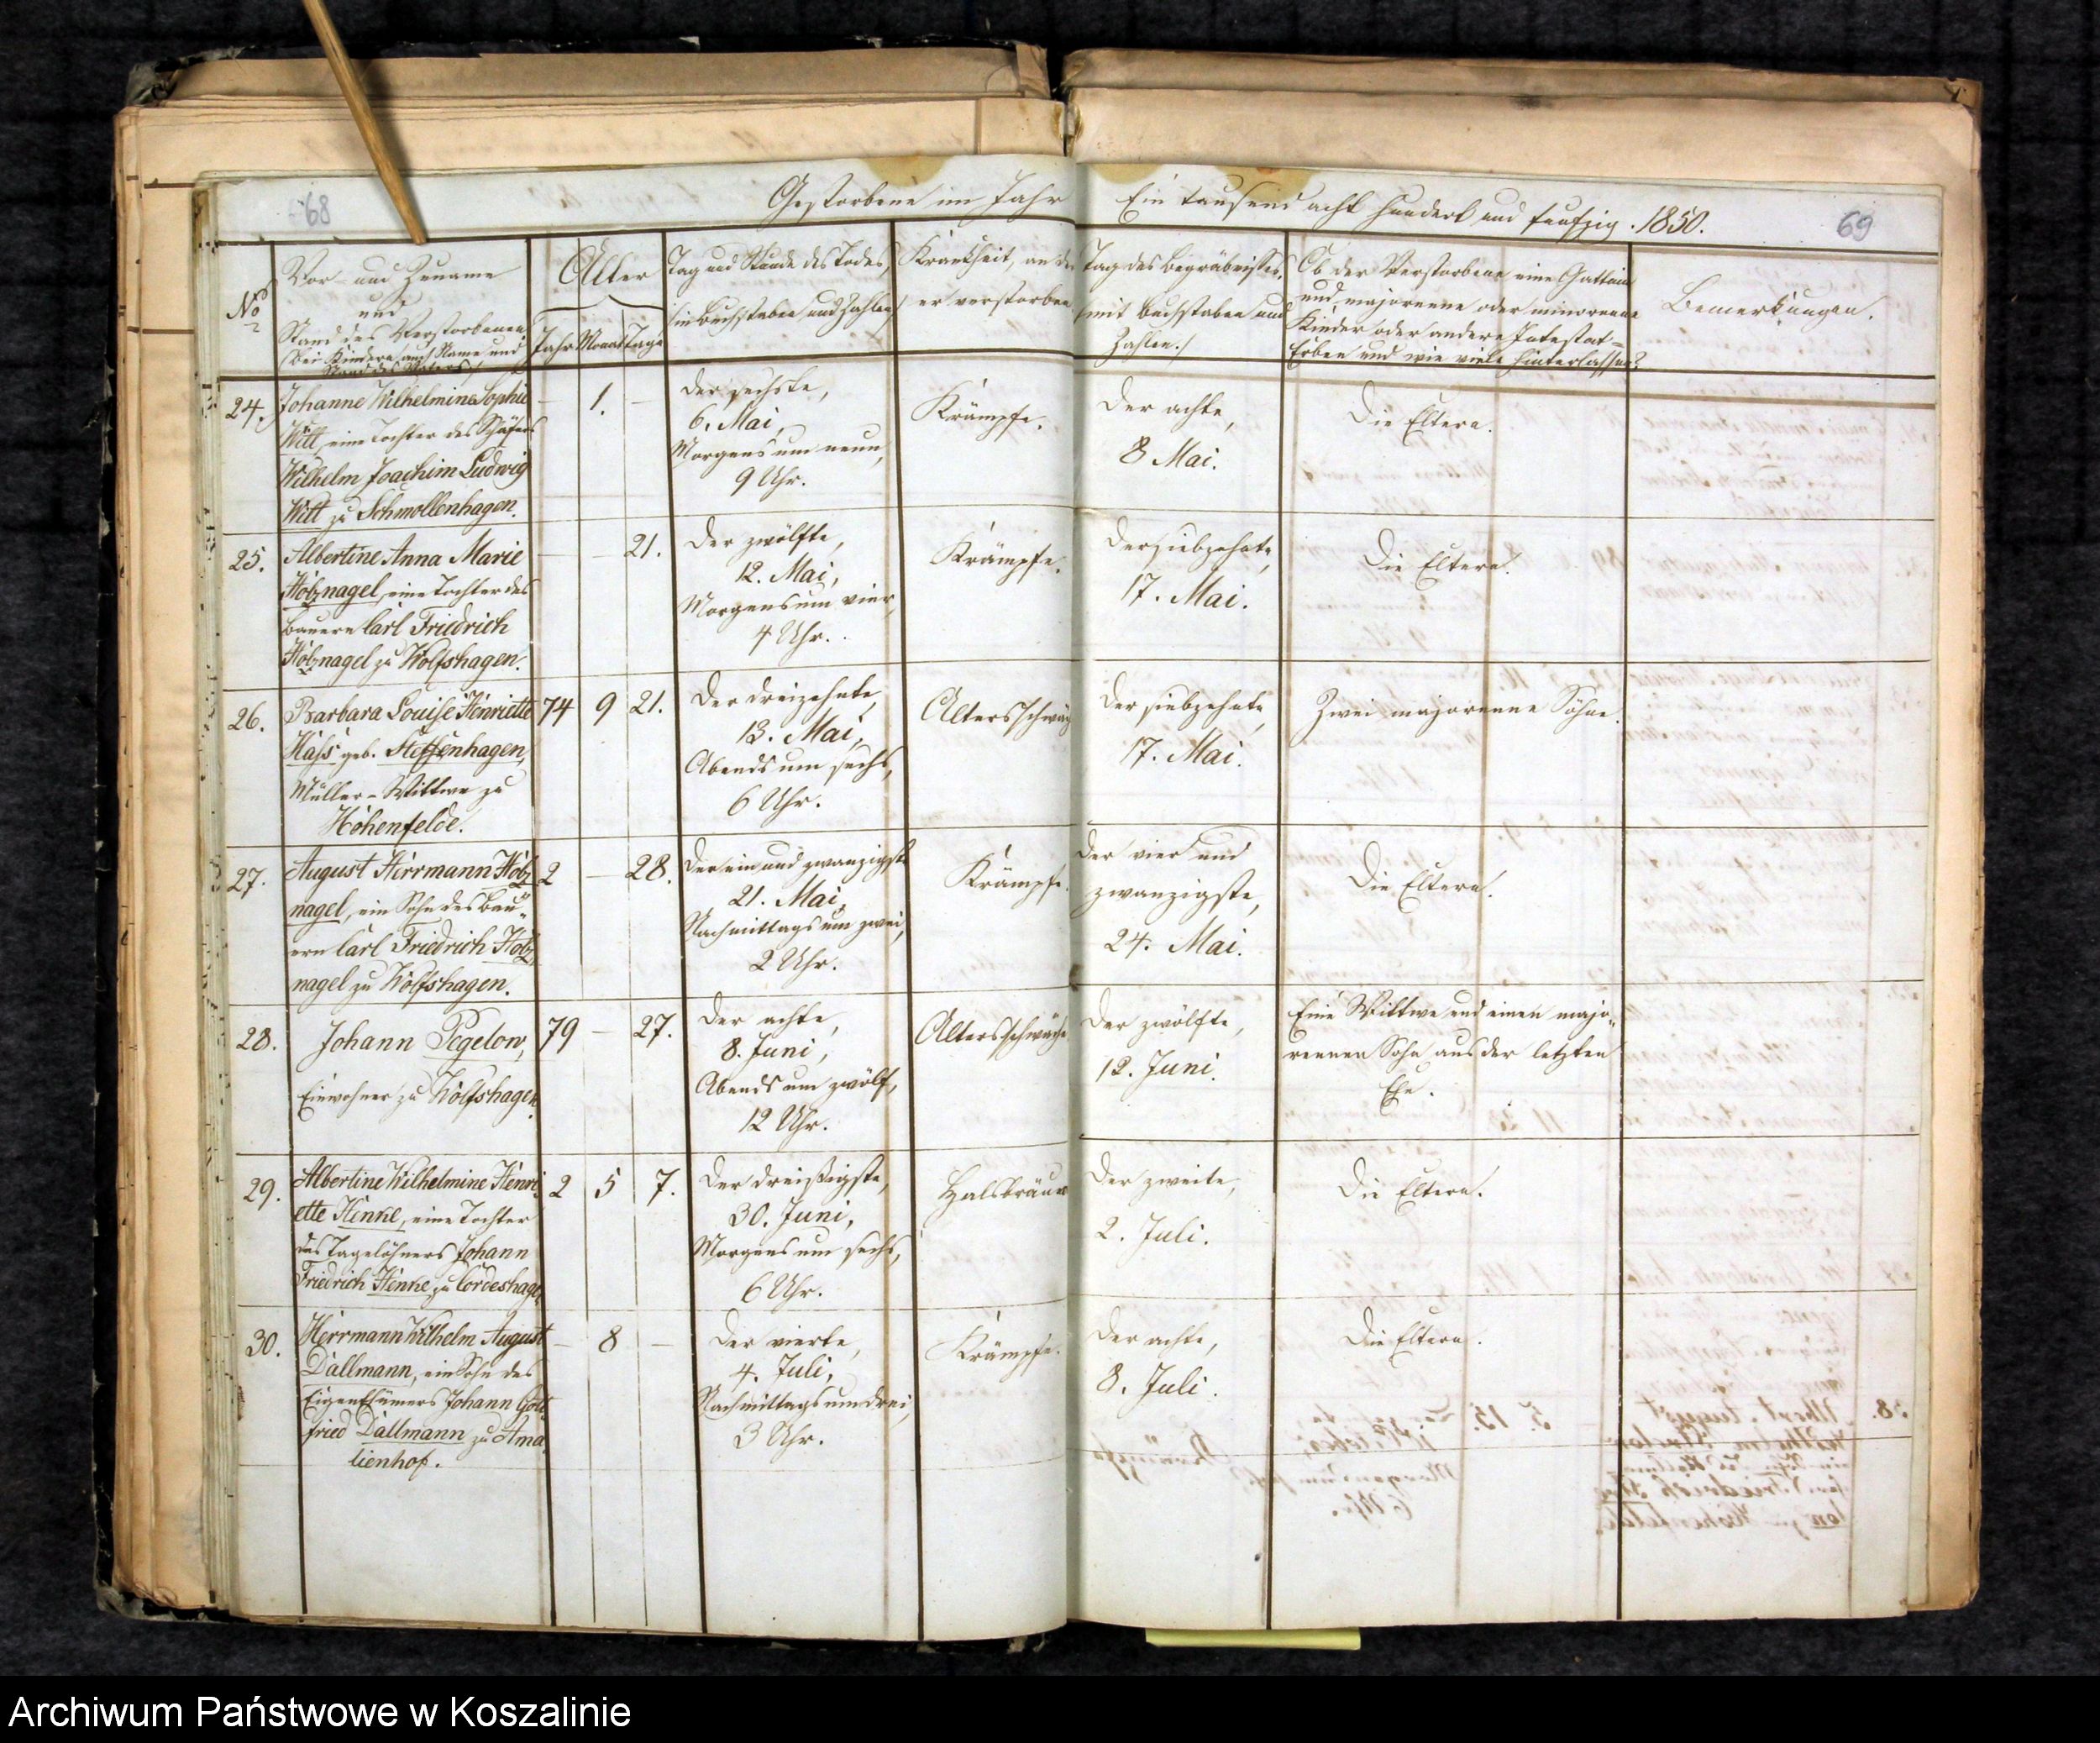 68
Gestorbene im Jahr
Ein tausend acht hundert und funfzig. 1850.
69
No
Vor- und Zuname
und
Stand des Verstorbenen.
(bei Kindern auch Name und
Stand des Vaters)
Alter
Jahr Monat Tage
Tag und Stunde des Todes,
(in Buchstaben und Zahlen)
Krankheit, an der
er verstorben
Tag des Begräbnisses.
(mit Buchstaben und
Zahlen.)
Ob der Verstorbene eine Gattin
und majorenne oder minorenne
Kinder oder andere Intestat-
Erben und wie viele hinterlassen?
Bemerkungen.
24.
Johanne Wilhelmine Sophie
Witt, eine Tochter des Schäfers
Wilhelm Joachim Ludwig
Witt zu Schmollenhagen.
– 1. –
Der sechste,
6. Mai,
Morgens um neun,
9 Uhr.
Krämpfe.
Der achte,
8 Mai.
Die Eltern.
25.
Albertine Anna Marie
Holznagel, eine Tochter des
Bauern Carl Friedrich
Holznagel zu Wolfshagen.
– – 21.
Der zwölfte,
12. Mai,
Morgens um vier,
4 Uhr.
Krämpfe.
Der siebzehnte,
17. Mai.
Die Eltern.
26.
Barbara Louise Henriette
Hass geb. Steffenhagen,
Müller-Wittwe zu
Hohenfelde.
74 9 21.
Der dreizehnte,
13. Mai,
Abends um sechs,
6 Uhr.
Der siebzehnte,
17. Mai.
Zwei majorenne Söhne.
27.
August Herrmann Holz
nagel, ein Sohn des Bau-
ern Carl Friedrich Holz
nagel zu Wolfshagen.
2 – 28.
Der ein und zwanzigste
21. Mai,
Nachmittags um zwei,
2 Uhr.
Krämpfe.
Der vier und
zwanzigste,
24. Mai.
Die Eltern.
28.
Johann Pegelow,
Einwohner zu Wolfshagen.
79 – 27.
Der achte,
8. Juni,
Abends um zwölf,
12 Uhr.
Altersschwäche
Der zwölfte,
12. Juni.
Eine Wittwe und einen majo-
rennen Sohn aus der letzten
Ehe.
29.
Albertine Wilhelmine Henri-
ette Henke, eine Tochter
des Tagelöhners Johann
Friedrich Henke zu Cordeshagen
2 5 7.
Der dreißigste,
30. Juni,
Morgens um sechs,
6 Uhr.
Halsbräune
Der zweite,
2. Juli.
Die Eltern.
30.
Herrmann Wilhelm August
Dallmann, ein Sohn des
Eigenthümers Johann Gott
fried Dallmann zu Ama
lienhof.
– 8 –
Der vierte,
4. Juli,
Nachmittags um drei,
3 Uhr.
Krämpfe.
Der achte,
8. Juli.
Die Eltern.
Archiwum Państwowe w Koszalinie